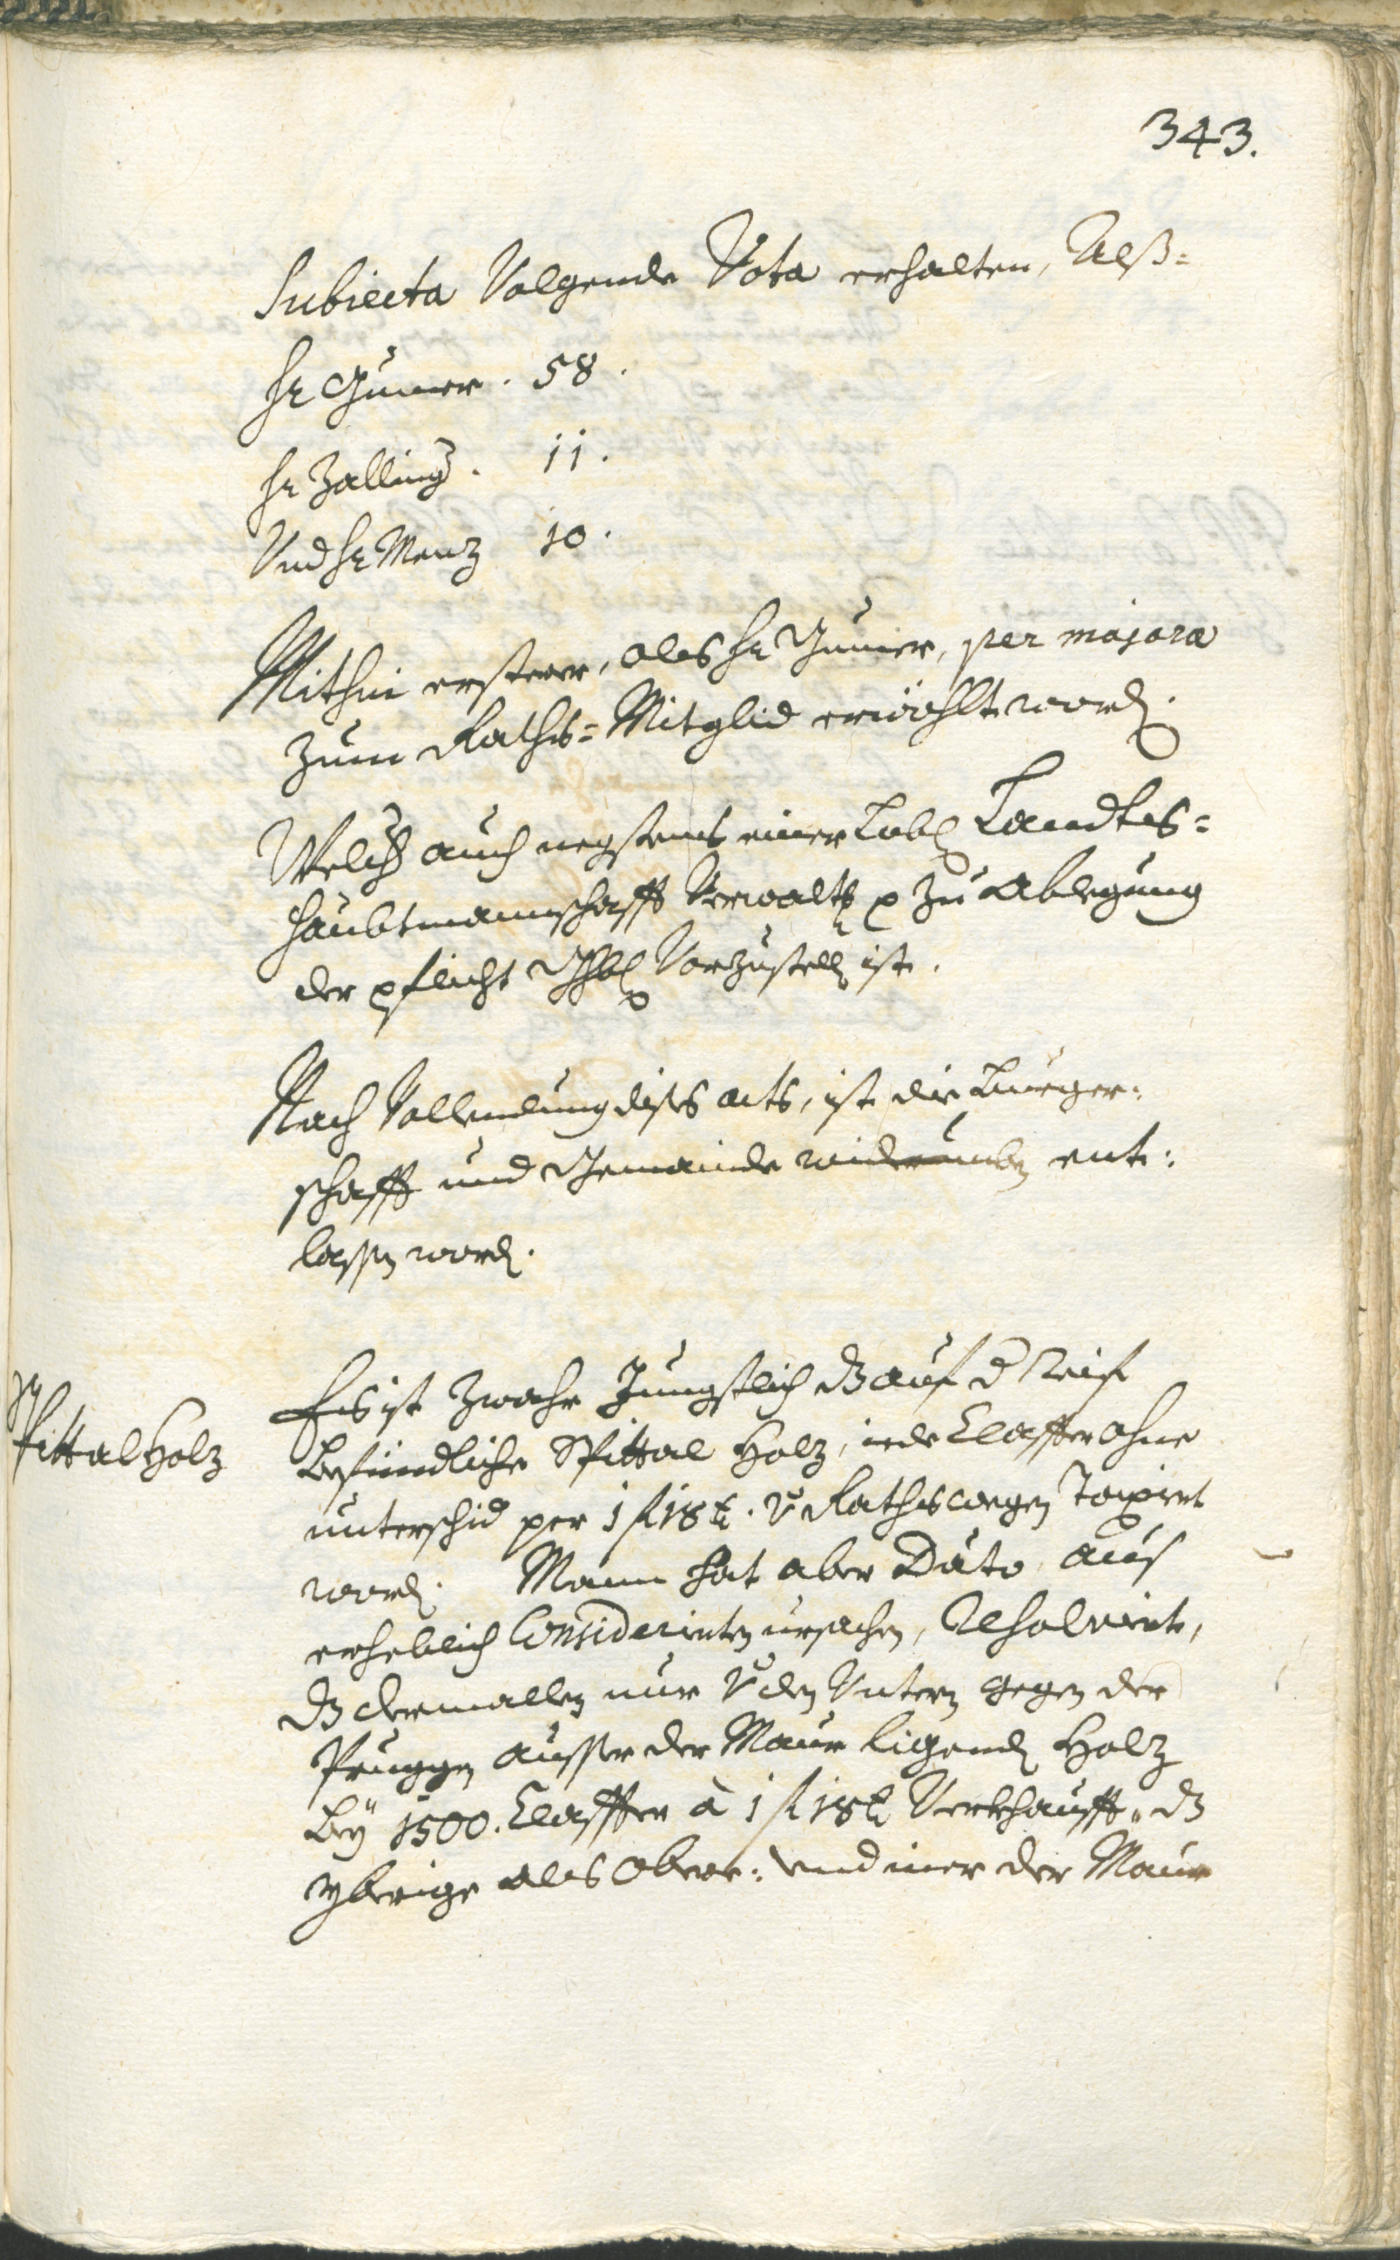 343.
Subiecta Volgende Vota erhalten, Alß=
Hr Gumer. 58.
Hr Zalling. 11.
Und Hr Menz 10.
Mithin ersterer, als Hr Gumer, per majora
zum Raths=Mitglid erwöhlt word.
Welcher auch negstens einer Lobl Landts=
haubtmannschafft Verwalt zu Ablegung
der pflicht Vorzustell ist.
Nach Vollendung dises acts, ist die Burger=
schafft und Gemainde widerumben ent=
lassen word.
Spittal Holz
Es ist zwahr Jungstlich dz auf d Reif
befündliche Spittal Holz, iede Claffter ohne
unterschid per 1 f 18 x. v Rathswegen Taxiert
word. Mann hat aber Dato aus
erheblich Considerierten ursachen, Resolviert,
dz dermallen nur v den Untern gegen der
Pruggen ausser der Maur ligend Holz
bey 1500. Claffter à 1 f 18 x Verkhaufft, dz
yberige als ober: und iner der Maur